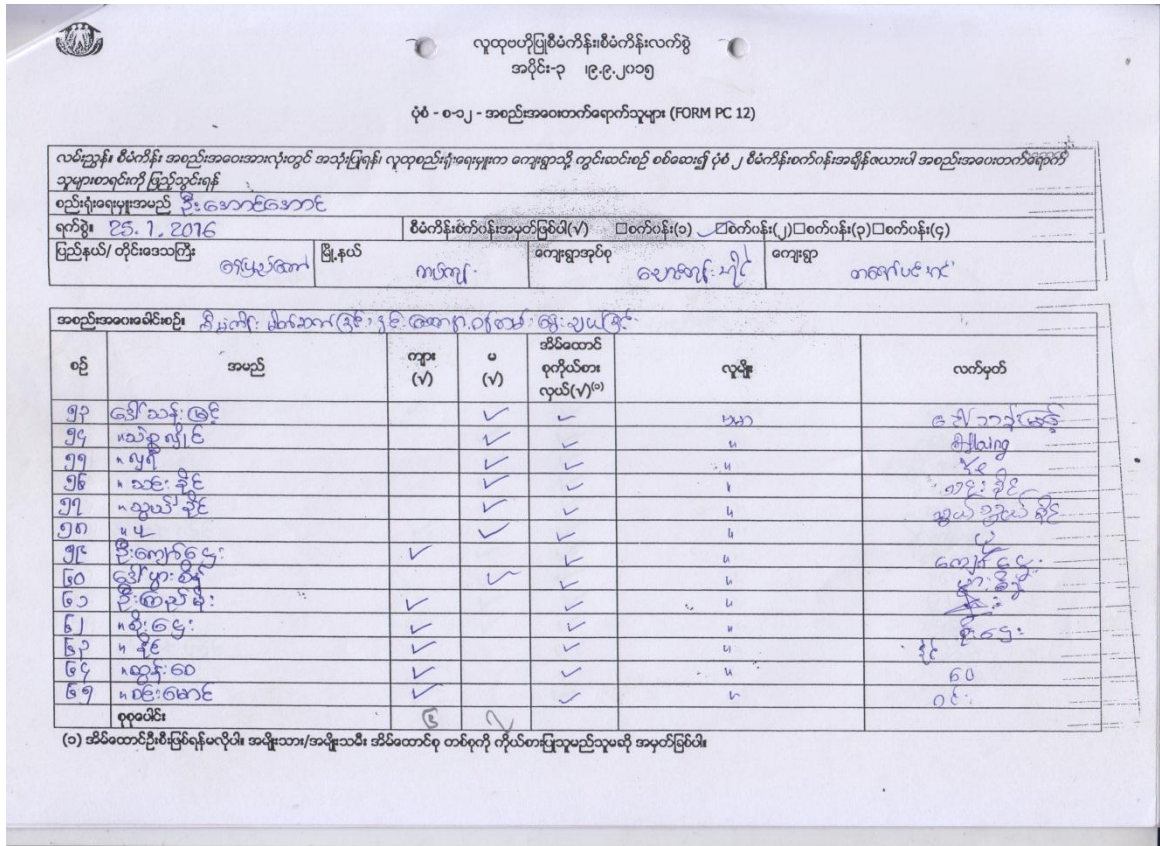 လူထုဗဟိုပြုစီမံကိန်း၊စီမံကိန်းလက်စွဲ
အပိုင်း-၃ ၊၉.၉.၂၀၁၅
ပုံစံ - စ-၁၂ - အစည်းအဝေးတက်ရောက်သူများ (FORM PC 12)
လမ်းညွှန်။ စီမံကိန်း အစည်းအဝေးအားလုံးတွင် အသုံးပြုရန်၊ လူထုစည်းရုံးရေးမှူးက ကျေးရွာသို့ ကွင်းဆင်းစဉ် စစ်ဆေး၍ ပုံစံ ၂ စီမံကိန်းစက်ဝန်းအချိန်ဇယားပါ အစည်းအဝေးတက်ရောက်
သူများစာရင်းကို ဖြည့်သွင်းရန်
စည်းရုံးရေးမှူးအမည် ဦးအောင်အောင်
ရက်စွဲ။ 25.1.2016 စီမံကိန်းစက်ဝန်းအမှတ်ဖြစ်ပါ(√) □စက်ဝန်း(၁) □စက်ဝန်း(၂)□စက်ဝန်း(၃)□စက်ဝန်း(၄)
ပြည်နယ်/ တိုင်းဒေသကြီး နေပြည်တော် မြို့နယ် တပ်ကုန်း ကျေးရွာအုပ်စု ကျေးရွာ
အစည်းအဝေးခေါင်းစဉ်။ စီမံကိန်း မိတ်ဆက်ခြင်း နှင့် စေတနာ့ဝန်ထမ်း ရွေးချယ်ခြင်း
စဉ် အမည် ကျား (√) မ (√) အိမ်ထောင်စုကိုယ်စားလှယ်(√)⁽¹⁾ လူမျိုး လက်မှတ်
၅၃ ဒေါ်သန်းမြင့် ✓ ✓ ဗမာ ဒေါ်သန်းမြင့်
၅၄ ✓ ✓ "
၅၅ ✓ ✓ "
၅၆ " သင်းနိုင် ✓ ✓ " သင်းနိုင်
၅၇ ✓ ✓ "
၅၈ " ပု ✓ ✓ " ပု
၅၉ ဦးကျော်ဌေး ✓ ✓ " ကျော်ဌေး
၆၀ ဒေါ်ဖွားစိန် ✓ ✓ " ဖွားစိန်
၆၁ ဦးကြည်မိုး ✓ ✓ "
၆၂ " စိုးဌေး ✓ ✓ " စိုးဌေး
၆၃ " နိုင် ✓ ✓ " နိုင်
၆၄ " ထွန်းဝေ ✓ ✓ " ဝေ
၆၅ " ဝင်းမောင် ✓ ✓ " ဝင်း
စုစုပေါင်း ၆ ၇
(၁) အိမ်ထောင်ဦးစီးဖြစ်ရန်မလိုပါ။ အမျိုးသား/အမျိုးသမီး အိမ်ထောင်စု တစ်စုကို ကိုယ်စားပြုသူမည်သူမဆို အမှတ်ခြစ်ပါ။